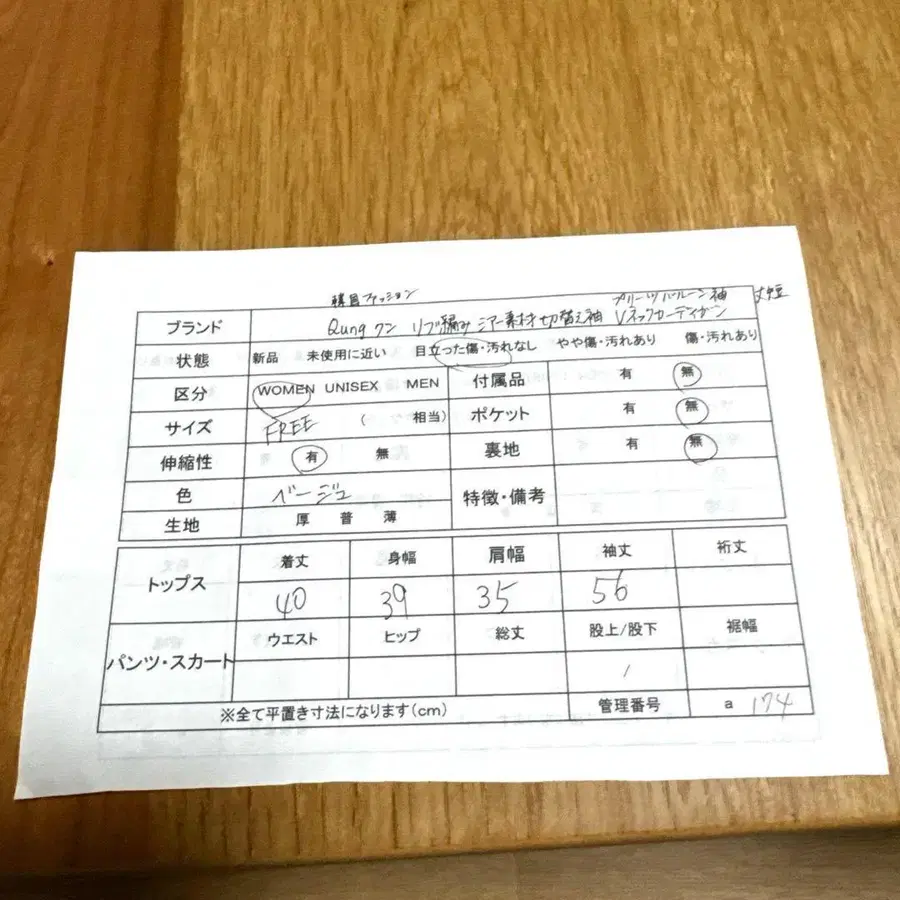 韓国ファッション プリーツバルーン袖 丈短
ブランド Qung クン リブ編み シアー素材切替え袖 Vネックカーディガン
状態 新品 未使用に近い 目立った傷・汚れなし やや傷・汚れあり 傷・汚れあり
区分 WOMEN UNISEX MEN 付属品 有 無
サイズ FREE ( 相当) ポケット 有 無
伸縮性 有 無 裏地 有 無
色 ベージュ 特徴・備考
生地 厚 普 薄
トップス 着丈 身幅 肩幅 袖丈 裄丈
40 39 35 56
パンツ・スカート ウエスト ヒップ 総丈 股上/股下 裾幅
/
※全て平置き寸法になります(cm) 管理番号 a 174